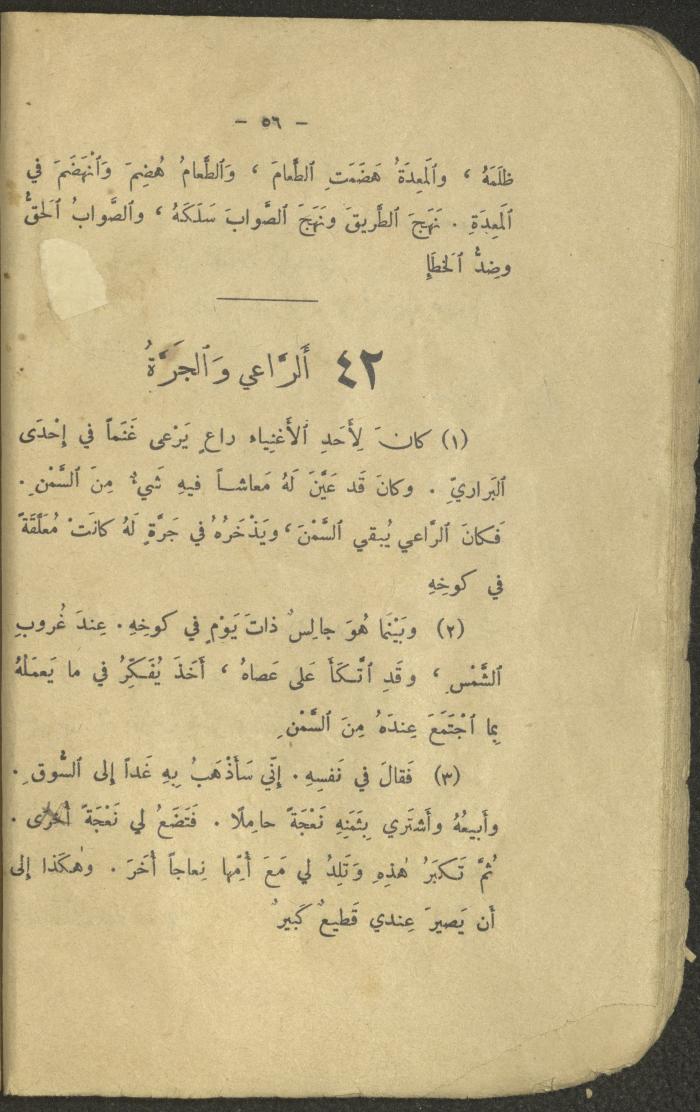 - ٥٦ -
ظَلَمَهُ ، والمَعِدَةُ هَضَمَتِ ٱلطَّعامَ ، وَٱلطَّعامُ هُضِمَ وَٱنْهَضَمَ في
ٱلمَعِدَةِ . نَهَجَ ٱلطَّريقَ ونَهَجَ ٱلصَّوابَ سَلَكَهُ ، وٱلصَّوابُ ٱلحَقُّ
وضِدُّ ٱلخَطَإِ
٤٢ أَلرَّاعي وَٱلجَرَّةُ
(١) كانَ لِأَحَدِ ٱلأَغنِياءِ راعٍ يَرْعى غَنَماً في إِحْدَى
ٱلبَراريِّ . وكانَ قَد عَيَّنَ لَهُ مَعاشاً فيهِ شَيءٌ مِنَ ٱلسَّمْنِ .
فَكانَ ٱلرَّاعي يُبقي ٱلسَّمْنَ ، ويَذْخَرُهُ في جَرَّةٍ لَهُ كانَتْ مُعَلَّقَةً
في كوخِهِ
(٢) وبَيْنَمَا هُوَ جالِسٌ ذاتَ يَوْمٍ في كوخِهِ . عِندَ غُروبِ
ٱلشَّمْسِ ، وقَدِ ٱتَّكَأَ عَلى عَصاهُ ، أَخَذَ يُفَكِّرُ في ما يَعمَلُهُ
بِما ٱجْتَمَعَ عِندَهُ مِنَ ٱلسَّمْنِ
(٣) فَقالَ في نَفسِهِ . إِنّي سَأَذْهَبُ بِهِ غَداً إِلى ٱلسُّوقِ .
وأَبيعُهُ وأَشتَري بِثَمَنِهِ نَعْجَةً حامِلًا . فَتَضَعُ لي نَعْجَةً أُخرَى .
ثُمَّ تَكبَرُ هٰذِهِ وَتَلِدُ لي مَعَ أُمِّها نِعاجاً أُخَرَ . وهٰكَذا إِلى
أَن يَصيرَ عِندي قَطيعٌ كَبيرٌ